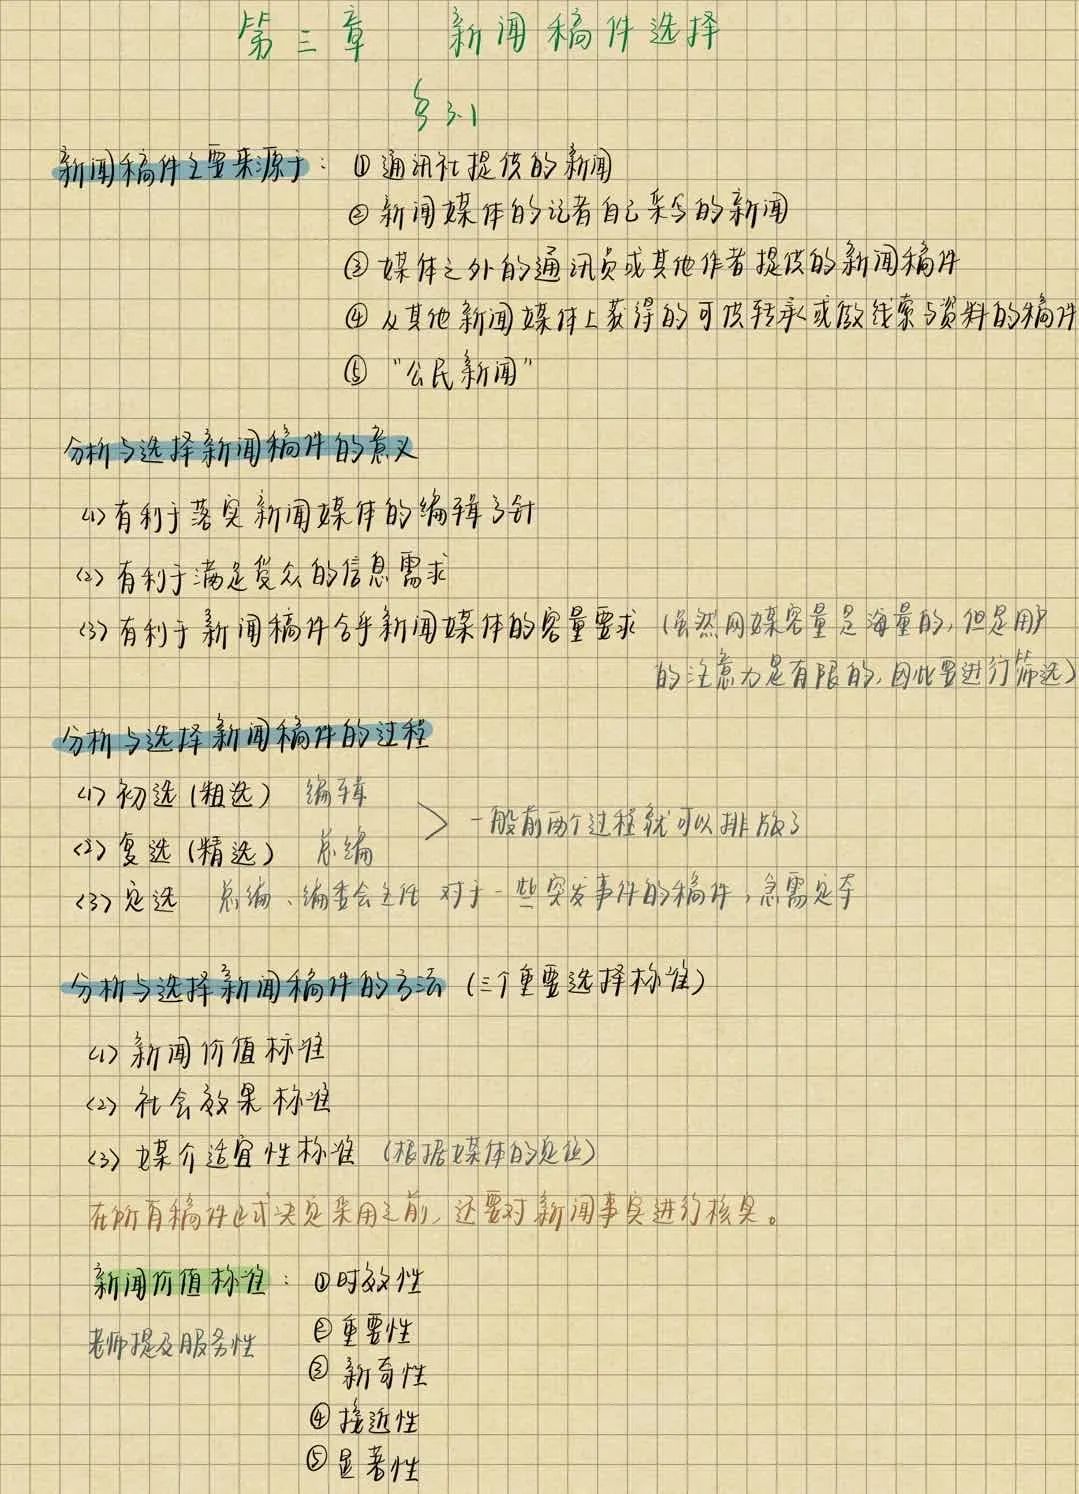 第三章 新闻稿件选择
§3.1
新闻稿件主要来源于：①通讯社提供的新闻
②新闻媒体的记者自己采写的新闻
③媒体之外的通讯员或其他作者提供的新闻稿件
④从其他新闻媒体上获得的可供转载或做线索与资料的稿件
⑤“公民新闻”
分析与选择新闻稿件的意义
(1)有利于落实新闻媒体的编辑方针
(2)有利于满足受众的信息需求
(3)有利于新闻稿件合乎新闻媒体的容量要求（虽然网媒容量是海量的，但是用户
的注意力是有限的，因此要进行筛选）
分析与选择新闻稿件的过程
(1)初选（粗选） 编辑
> 一般前两个过程就可以排版了
(2)复选（精选） 总编
(3)定选 总编、编委会主任 对于一些突发事件的稿件，急需定夺
分析与选择新闻稿件的方法（三个重要选择标准）
(1)新闻价值标准
(2)社会效果标准
(3)媒介适宜性标准（根据媒体的定位）
在所有稿件正式决定采用之前，还要对新闻事实进行核实。
新闻价值标准：①时效性
老师提及服务性
②重要性
③新奇性
④接近性
⑤显著性